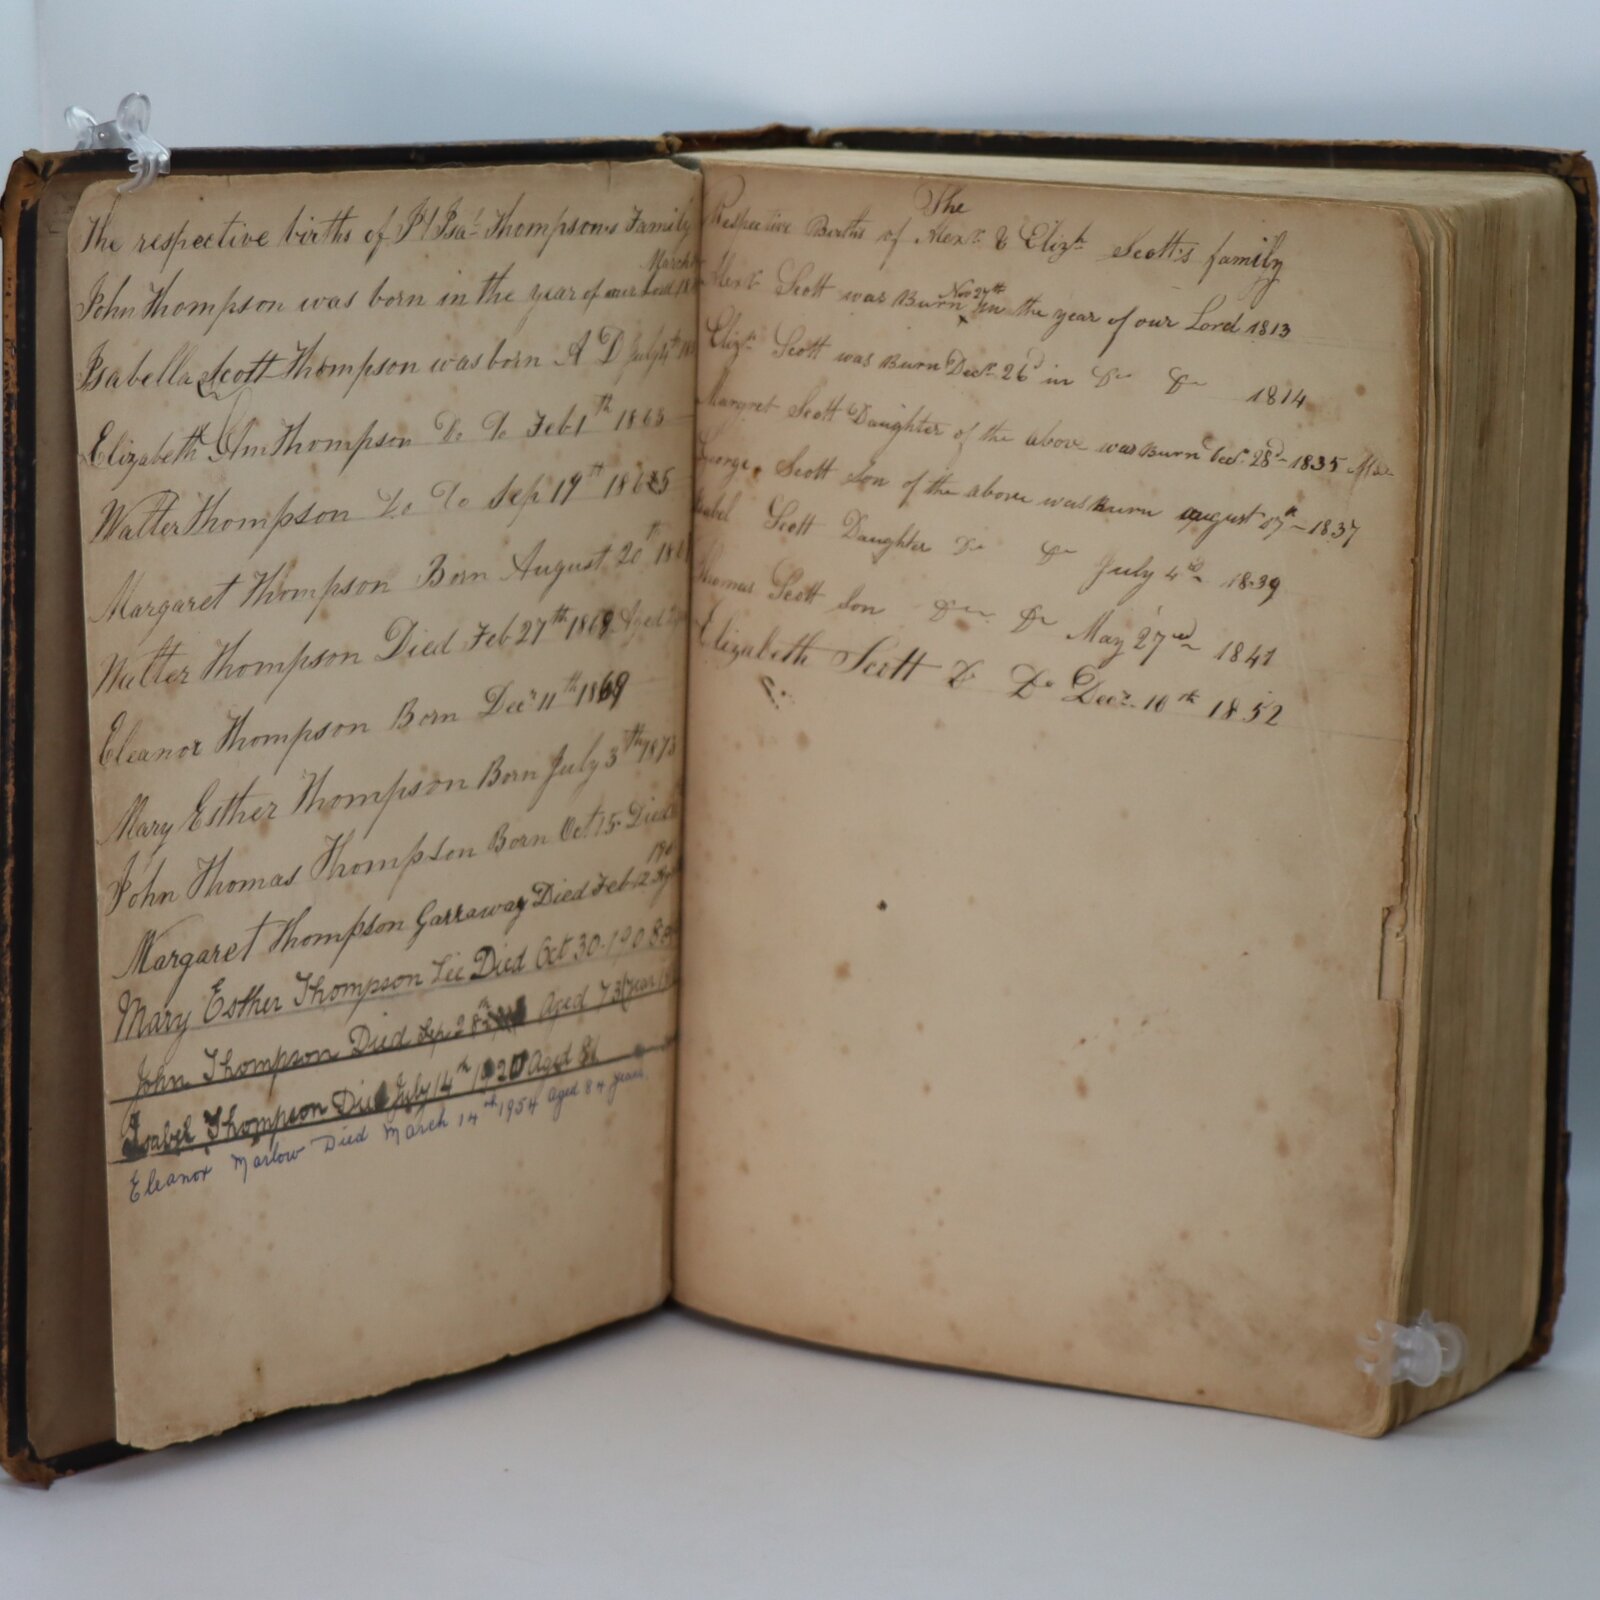 The respective births of Jn Isa- Thompson's Family
March
John Thompson was born in the year of our Lord
Isabella Scott Thompson was born A D July 4th
Elizabeth Ann Thompson Do Do Feb 1th 1865
Walter Thompson Do Do Sep 19th
Margaret Thompson Born August 20th
Walter Thompson Died Feb 27th 1869 Aged
Eleanor Thompson Born Decr 11th 1869
Mary Esther Thompson Born July 3th 1873
John Thomas Thompson Born Oct 15 Died
Margaret Thompson Garraway Died Feb 12
Mary Esther Thompson Lee Died Oct 30-1908
John Thompson Died Sep 28th Aged 73
Isabel Thompson Died July 14th 1920 Aged 81
Eleanor Marlow Died March 14th 1954 aged 84 years.
The
Respective Births of Alexr & Elizth Scott's family
Nov 27th
Alexr Scott was Burn in the year of our Lord 1813
Elizth Scott was Burn Decr 26d in Do Do 1814
Margret Scott Daughter of the above was Burn Decr 28d - 1835
George Scott Son of the above was Burn august 17th - 1837
Isabel Scott Daughter Do Do July 4th 1839
Thomas Scott Son Do Do May 27nd 1841
Elizabeth Scott Do Do Decr 10th 1852